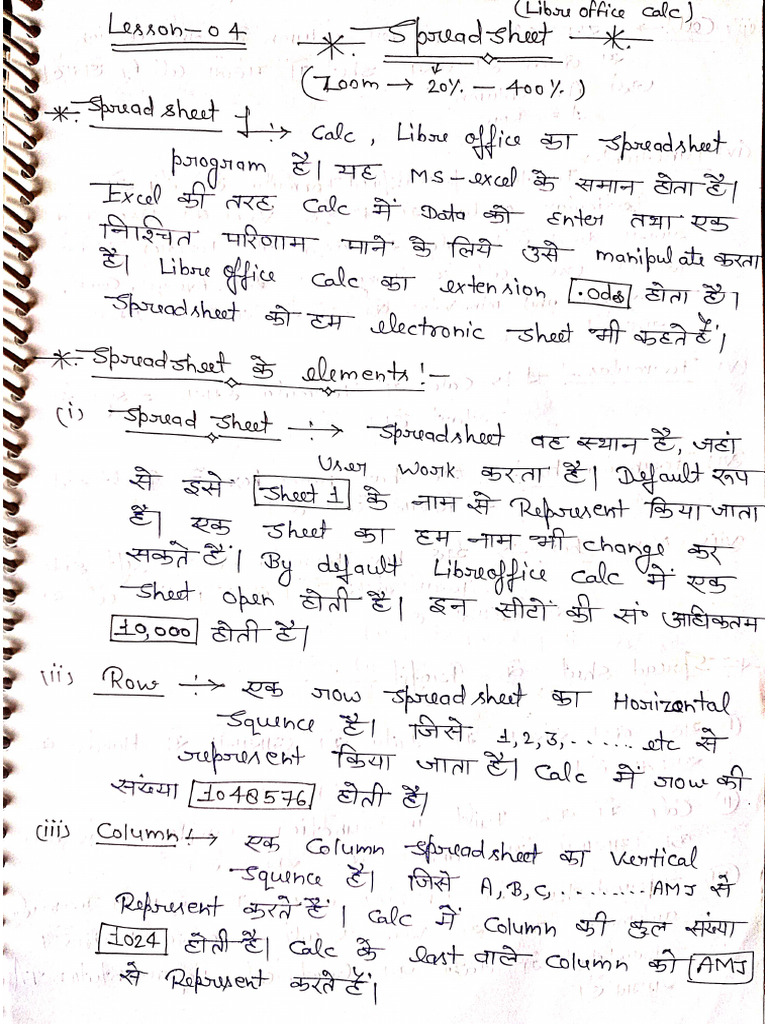 (Libre office calc)
Lesson-04 * Spreadsheet *
(Zoom → 20% - 400%)
* Spreadsheet :→ Calc, Libre office का Spreadsheet
program है। यह MS-excel के समान होता है।
Excel की तरह Calc में Data को Enter तथा एक
निश्चित परिणाम पाने के लिये उसे manipulate करता
है। Libre office Calc का extension .ods होता है।
Spreadsheet को हम electronic sheet भी कहते हैं।
* Spreadsheet के elements:-
(i) Spread sheet :→ Spreadsheet वह स्थान है, जहां
User Work करता है। Default रूप
से इसे Sheet 1 के नाम से Represent किया जाता
है। एक sheet का हम नाम भी change कर
सकते हैं। By default Libreoffice Calc में एक
sheet open होती है। इन सीटों की सं० अधिकतम
10,000 होती है।
(ii) Row :→ एक row spreadsheet का Horizontal
Squence है। जिसे 1,2,3,...... etc से
represent किया जाता है। Calc में row की
संख्या 1048576 होती है।
(iii) Column :→ एक Column spreadsheet का Vertical
Squence है। जिसे A,B,C,......... AMJ से
Represent करते हैं। Calc में Column की कुल संख्या
1024 होती है। Calc के last वाले Column को AMJ
से Represent करते हैं।